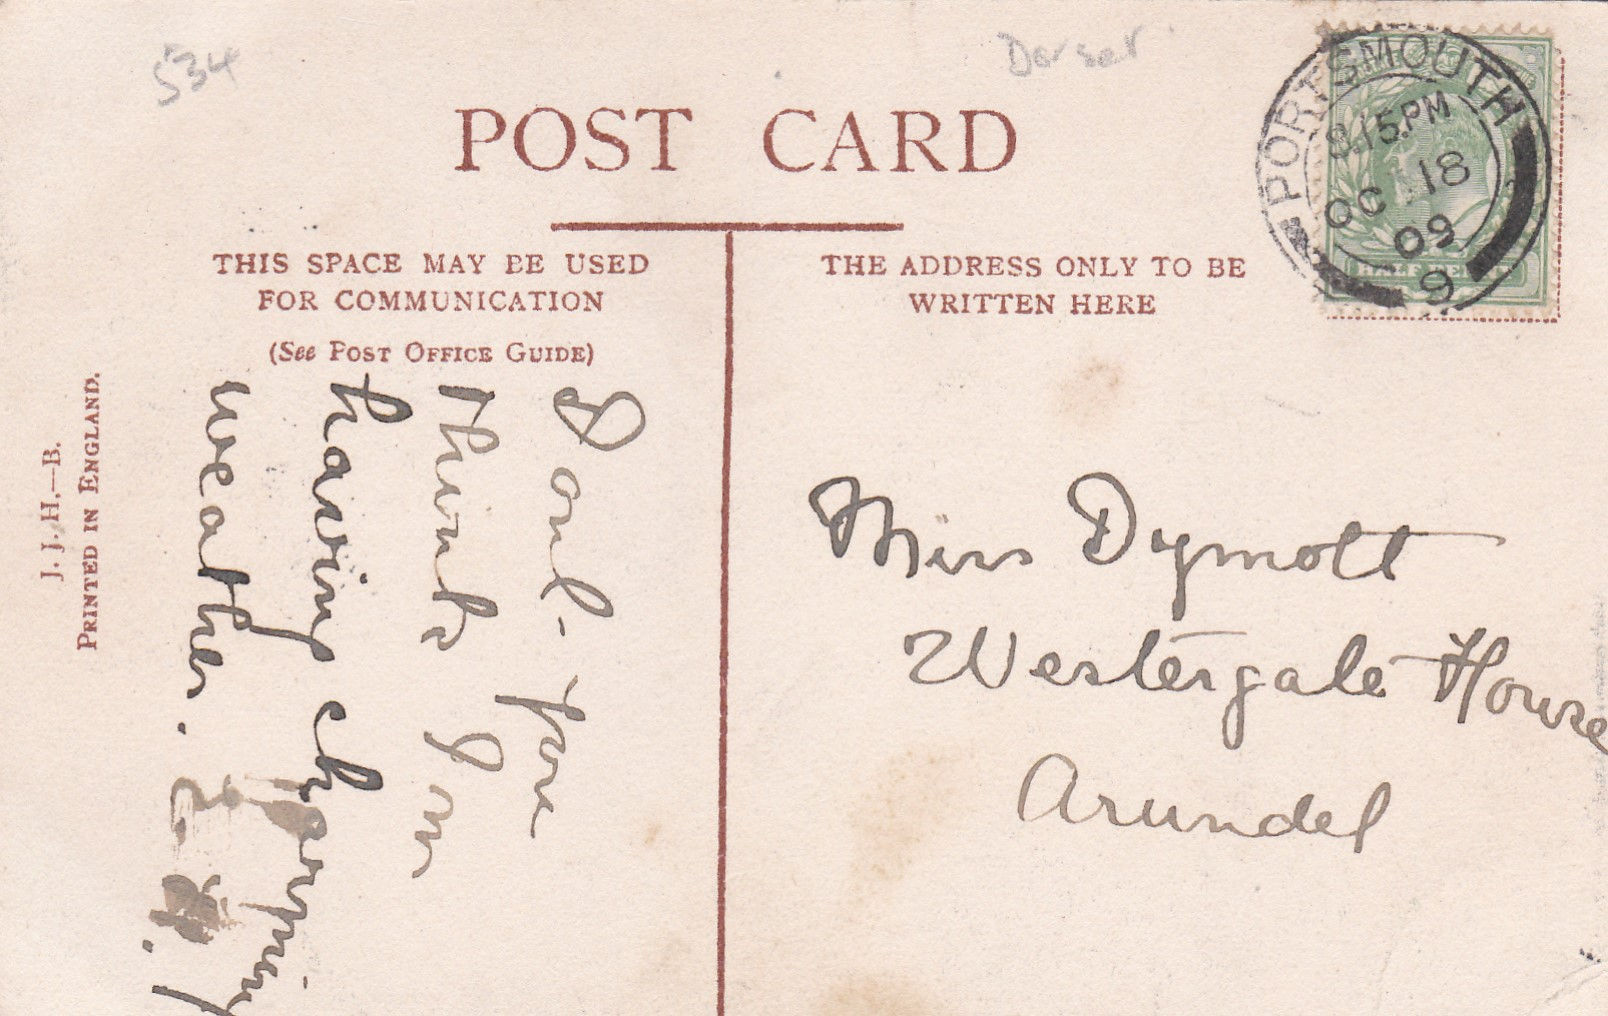 534
Dorset
POST CARD
THIS SPACE MAY BE USED
FOR COMMUNICATION
(See POST OFFICE GUIDE)
THE ADDRESS ONLY TO BE
WRITTEN HERE
PORTSMOUTH
8.15.PM
OC 18
09
9
HALF PENNY
J. J. H.—B.
PRINTED IN ENGLAND.
think I am
having
weather.
Miss Dymott
Westergate House
Arundel